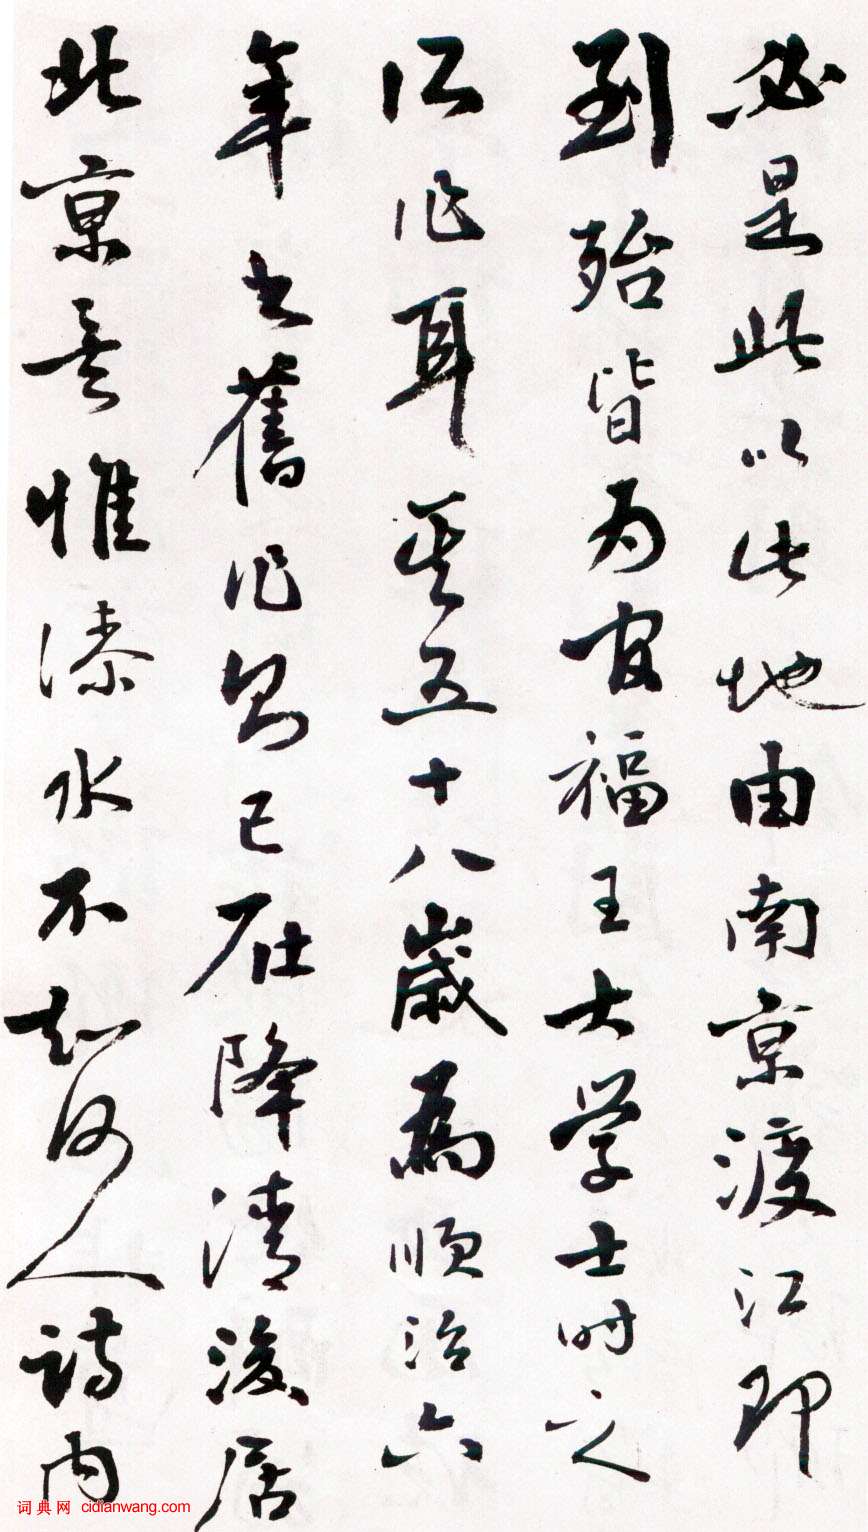 必是此以此地由南京渡江即
到殆皆为官福王大学士时之
所作耳其五十八岁为顺治六
年书旧作则已在降清后居
北京矣惟溱水不知何人诗内
词典网 cidianwang.com